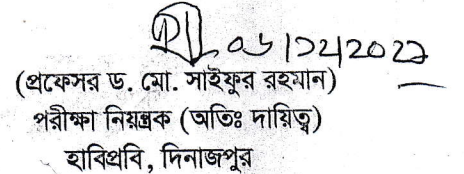 ০৬/১২/২০২
(প্রফেসর ড. মো. সাইফুর রহমান)
পরীক্ষা নিয়ন্ত্রক (অতিঃ দায়িত্ব)
হাবিপ্রবি, দিনাজপুর